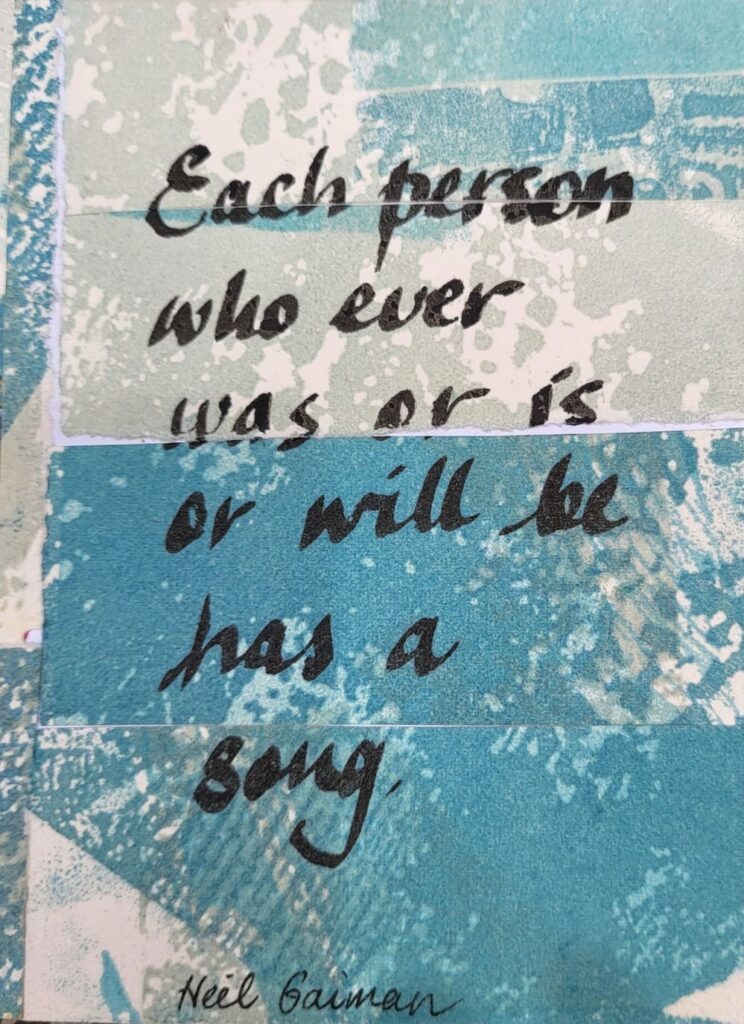 Each person
who ever
was or is
or will be
has a
song.
Neil Gaiman